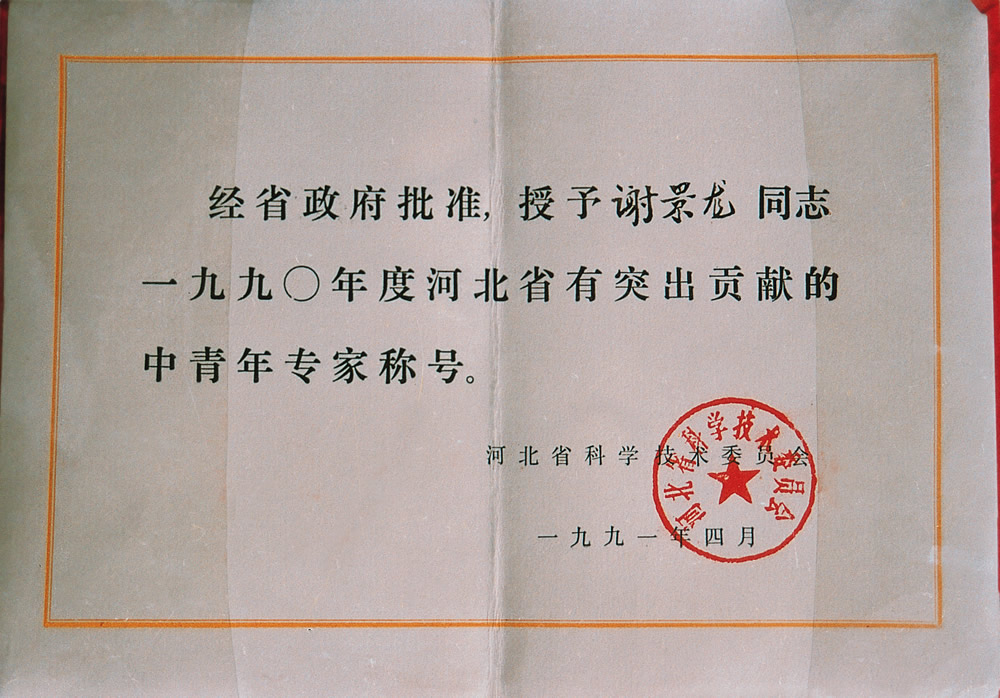 经省政府批准,授予谢景龙同志
一九九〇年度河北省有突出贡献的
中青年专家称号。
河北省科学技术委员会
一九九一年四月
河北省科学技术委员会